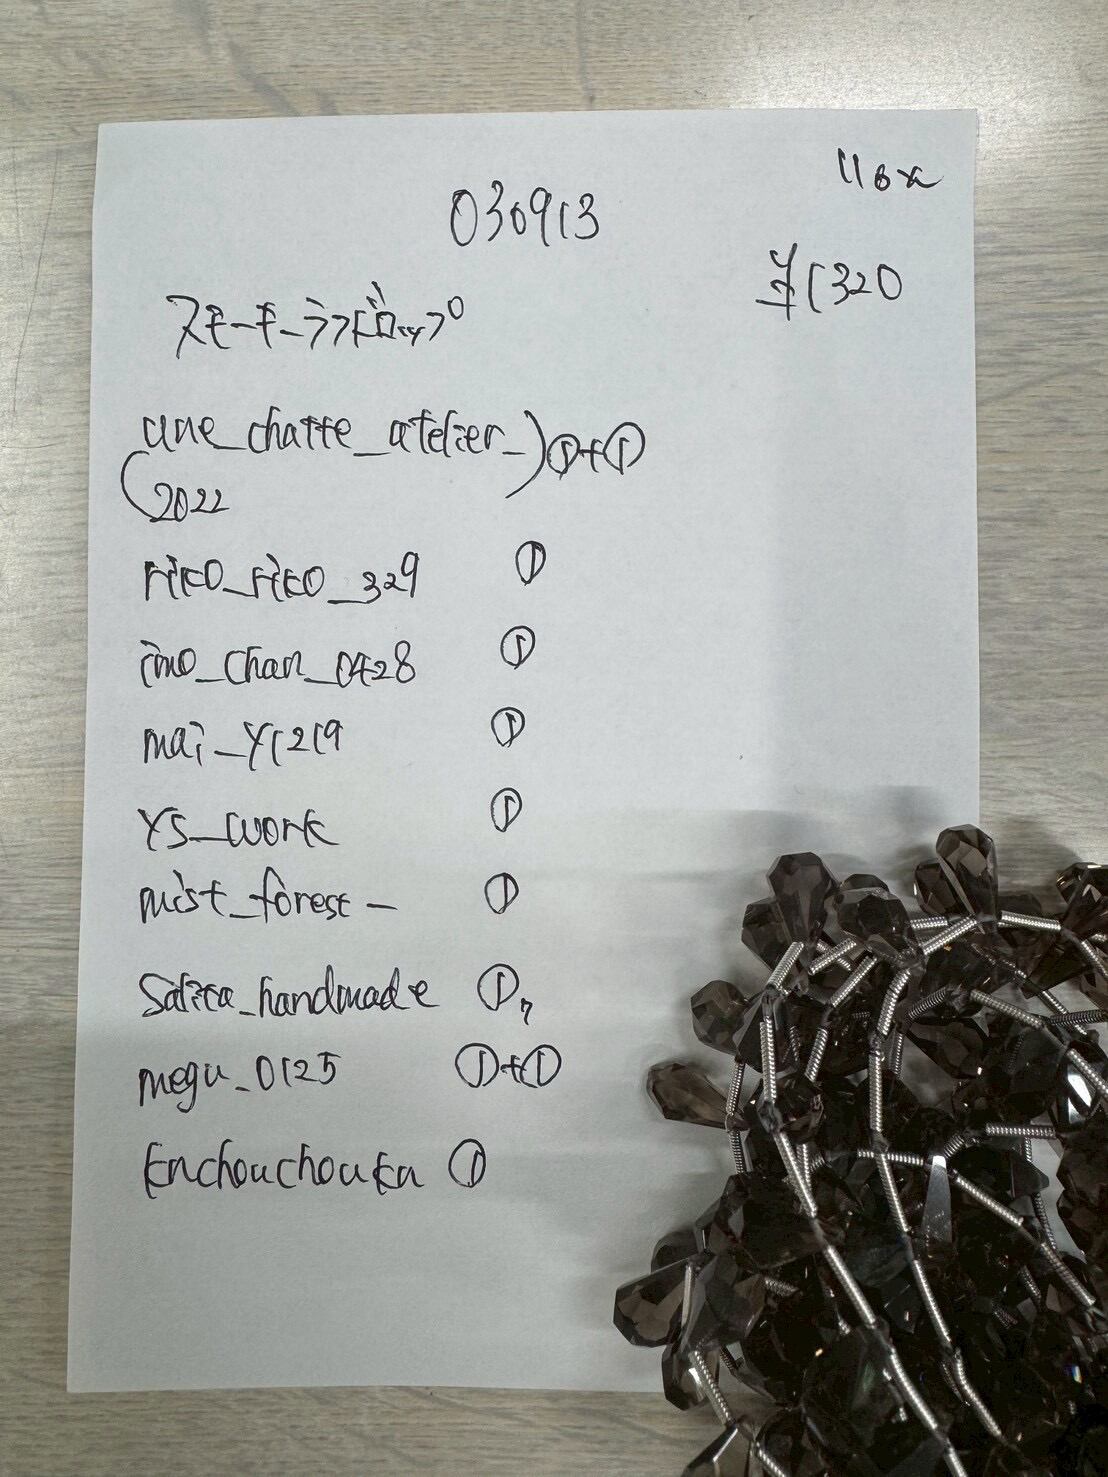 030913
¥1320
スモーキーラフドロップ
une_chatte_atelier_ ①+①
2022
riko_riko_329 ①
imo_chan_0428 ①
mai_y1219 ①
YS_work ①
mist_forest_ ①
Salica_handmade ①
megu_0125 ①+①
knchouchoukn ①